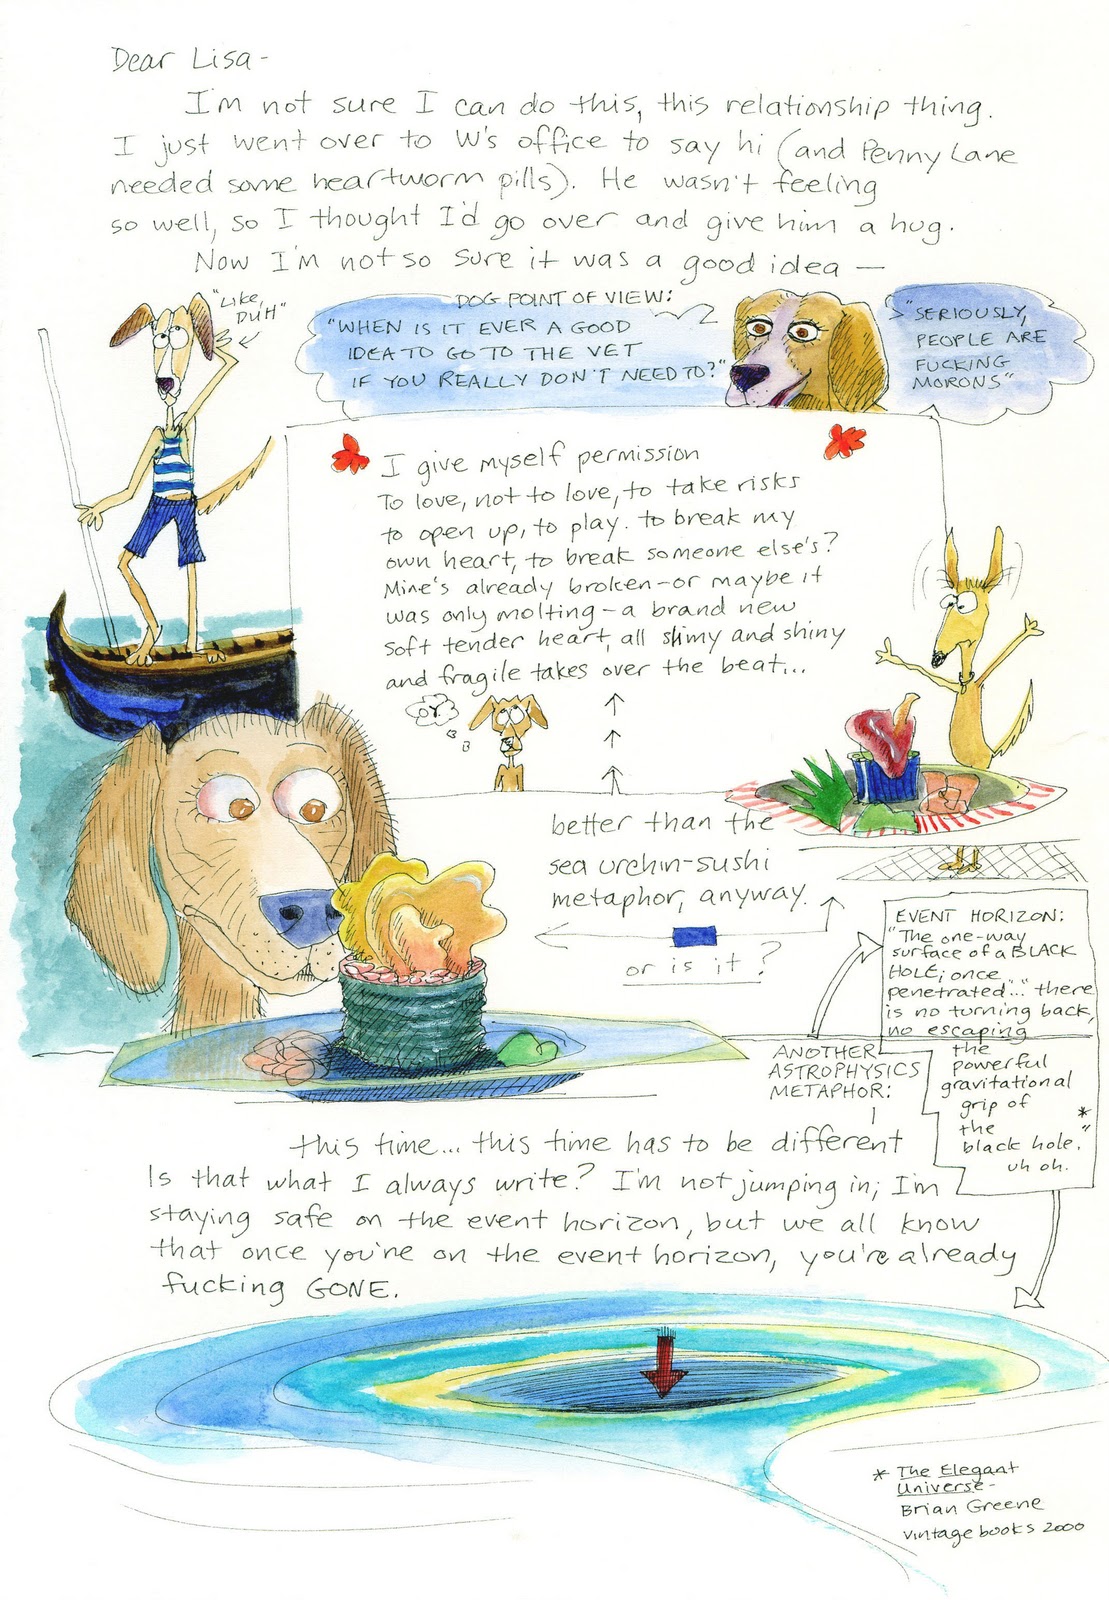 Dear Lisa-
I'm not sure I can do this, this relationship thing.
I just went over to W's office to say hi (and Penny Lane
needed some heartworm pills). He wasn't feeling
so well, so I thought I'd go over and give him a hug.
Now I'm not so sure it was a good idea —
"Like,
DUH"
DOG POINT OF VIEW:
"WHEN IS IT EVER A GOOD
IDEA TO GO TO THE VET
IF YOU REALLY DON'T NEED TO?"
"SERIOUSLY,
PEOPLE ARE
FUCKING
MORONS"
I give myself permission
To love, not to love, to take risks
to open up, to play. to break my
own heart, to break someone else's?
Mine's already broken-or maybe it
was only molting - a brand new
soft tender heart, all slimy and shiny
and fragile takes over the beat...
or.
better than the
sea urchin-sushi
metaphor, anyway.
or is it?
EVENT HORIZON:
"The one-way
surface of a BLACK
HOLE; once
penetrated..." "there
is no turning back,
no escaping
the
powerful
gravitational
grip of
the
black hole."*
uh oh.
ANOTHER
ASTROPHYSICS
METAPHOR:
this time... this time has to be different
Is that what I always write? I'm not jumping in; I'm
staying safe on the event horizon, but we all know
that once you're on the event horizon, you're already
fucking GONE.
* The Elegant
Universe-
Brian Greene
Vintage books 2000